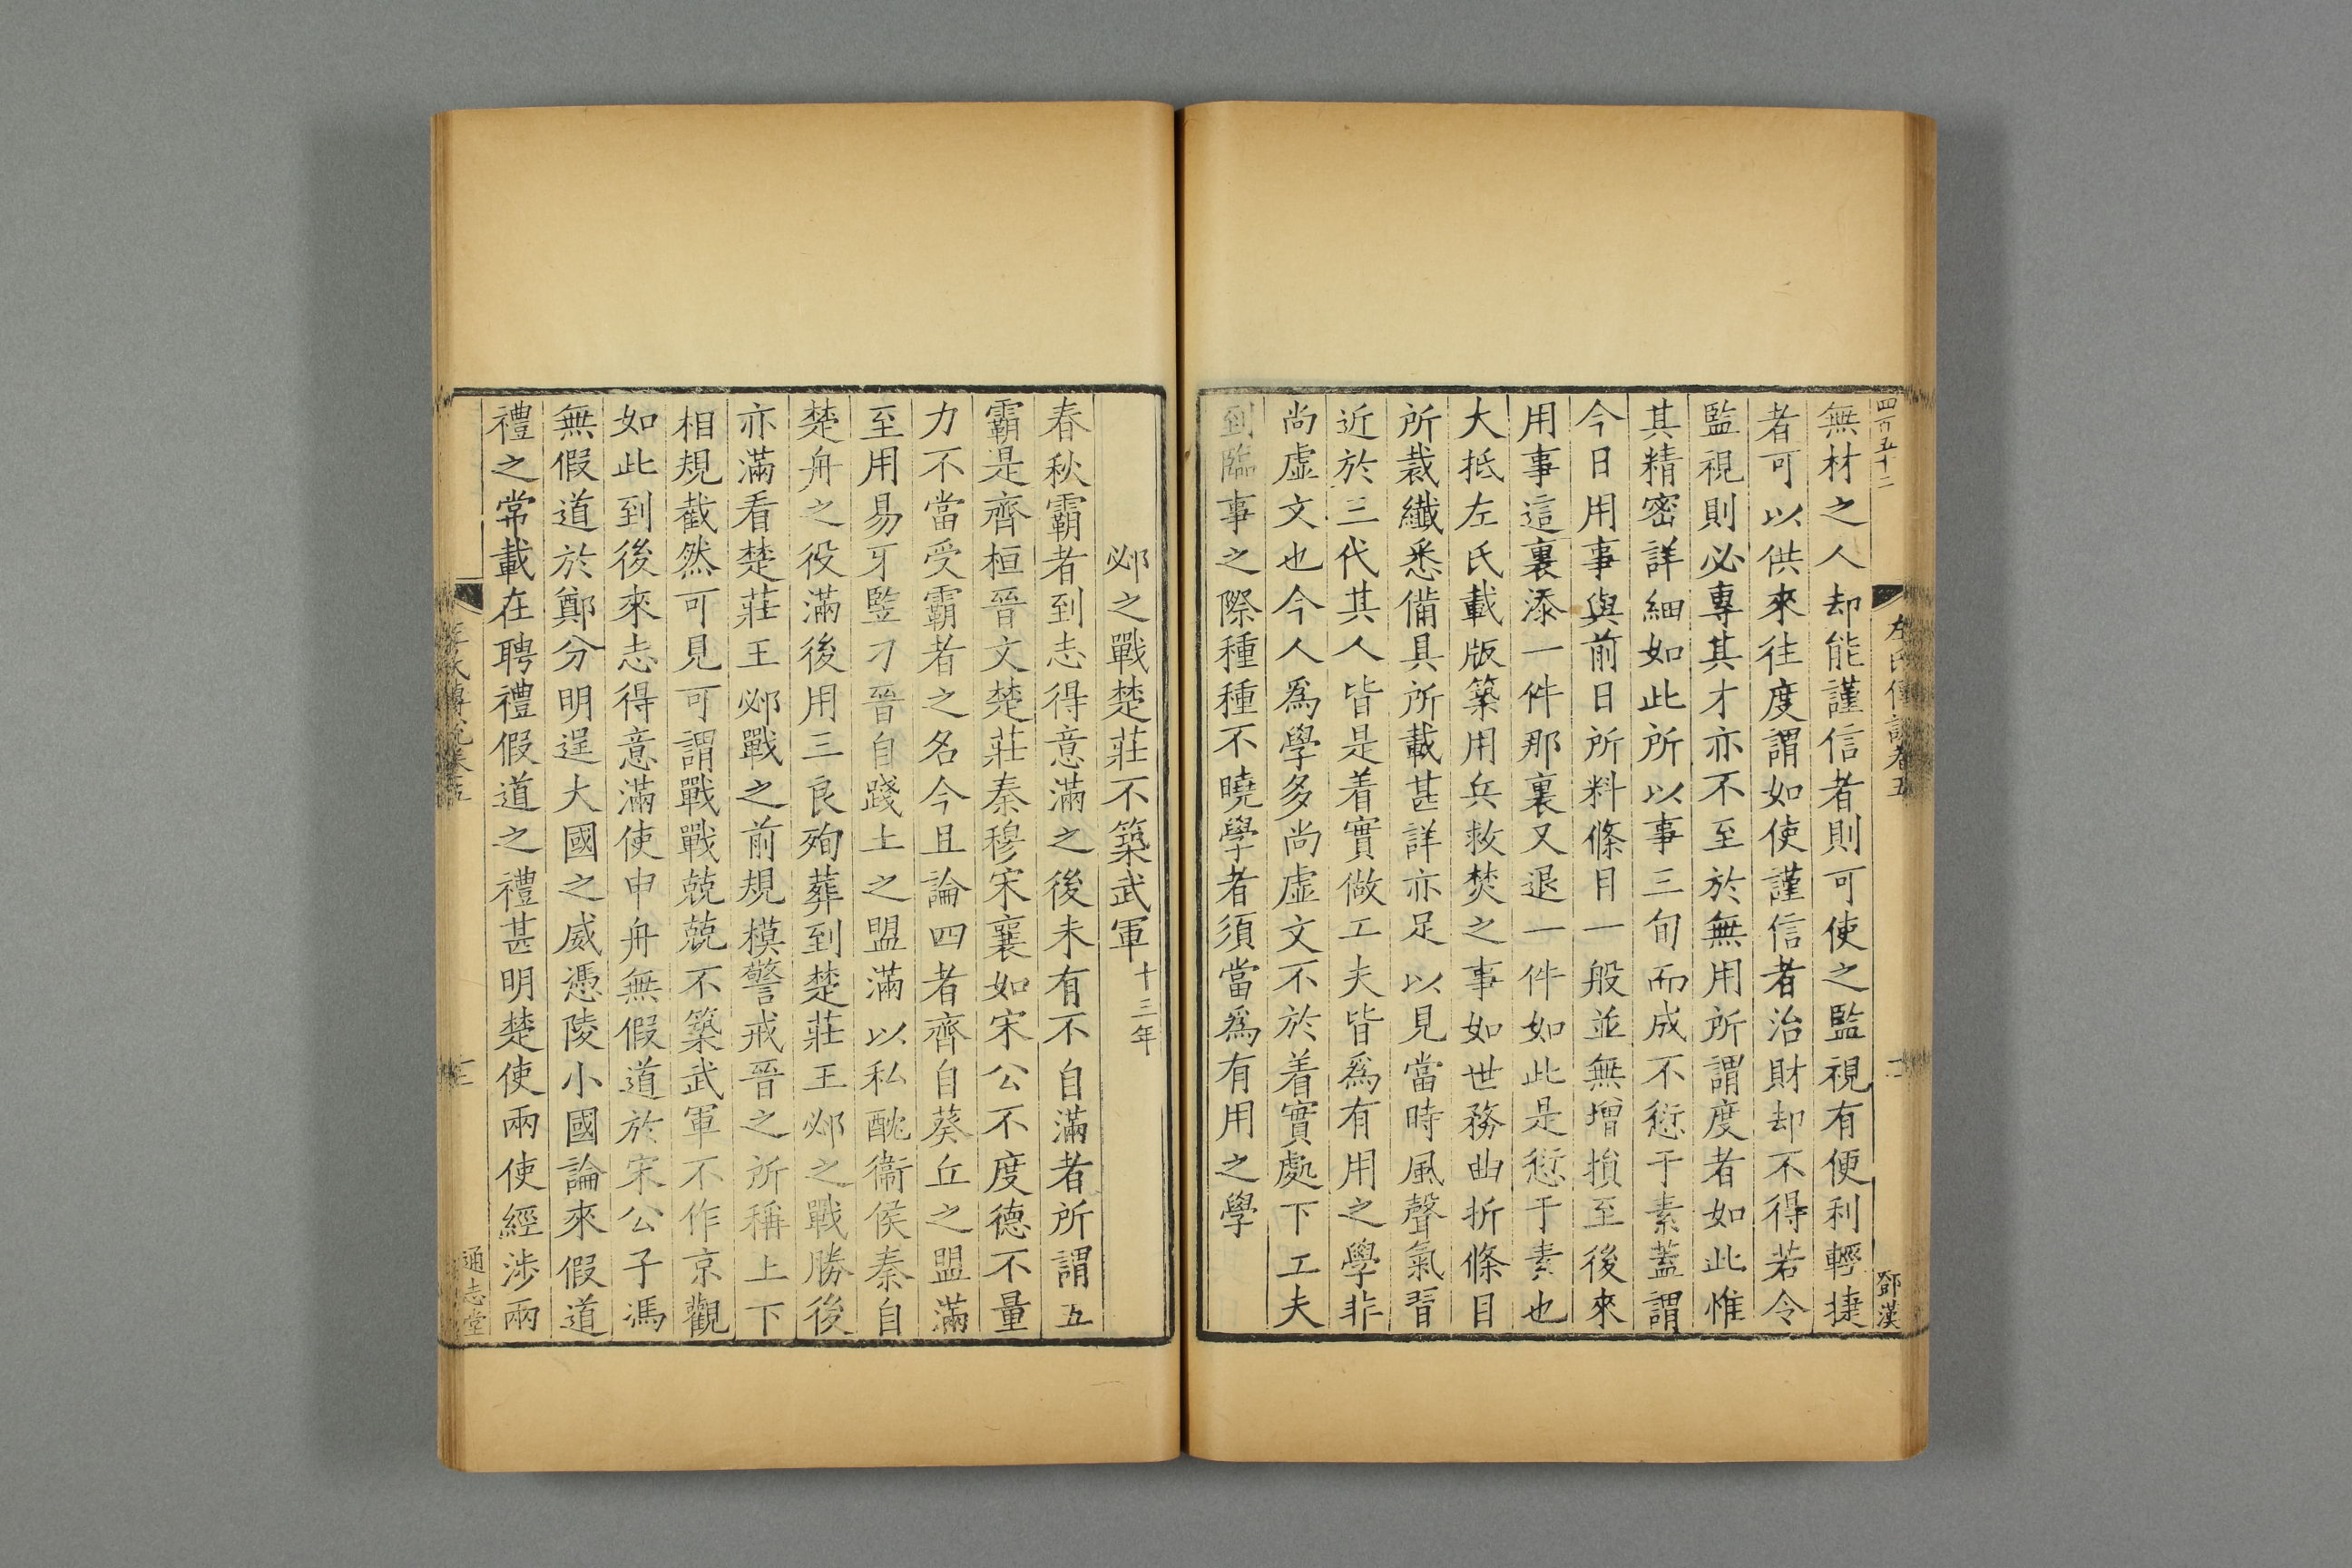 四百五十二
左氏傳說卷五
十二
鄧漢
無材之人却能謹信者則可使之監視有便利輕捷
者可以供來往度謂如使謹信者治財却不得若令
監視則必專其才亦不至於無用所謂度者如此惟
其精密詳細如此所以事三旬而成不愆于素蓋謂
今日用事與前日所料條目一般並無增損至後來
用事這裏添一件那裏又退一件如此是愆于素也
大抵左氏載版築用兵救焚之事如世務曲折條目
所裁纖悉備具所載甚詳亦足以見當時風聲氣習
近於三代其人皆是着實做工夫皆爲有用之學非
尚虛文也今人爲學多尚虛文不於着實處下工夫
到臨事之際種種不曉學者須當爲有用之學
邲之戰楚莊不築武軍十三年
春秋霸者到志得意滿之後未有不自滿者所謂五
霸是齊桓晉文楚莊秦穆宋襄如宋公不度德不量
力不當受霸者之名今且論四者齊自葵丘之盟滿
至用易牙豎刁晉自踐土之盟滿以私酖衞侯秦自
楚舟之役滿後用三良殉葬到楚莊王邲之戰勝後
亦滿看楚莊王邲戰之前規模警戒晉之所稱上下
相規截然可見可謂戰戰兢兢不築武軍不作京觀
如此到後來志得意滿使申舟無假道於宋公子馮
無假道於鄭分明逞大國之威憑陵小國論來假道
禮之常載在聘禮假道之禮甚明楚使兩使經涉兩
通志堂